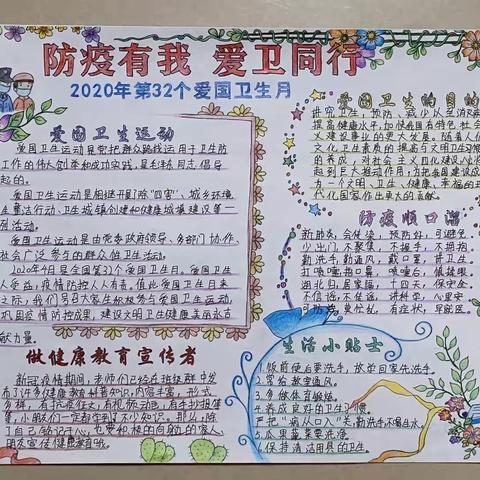 防疫有我 爱卫同行
2020年第32个爱国卫生月
爱国卫生运动
爱国卫生运动是党把群众路线运用于卫生防
工作的伟大创举和成功实践,是毛泽东同志倡导
起的。
爱国卫生运动是相继开展了除"四害"、城乡环境
生整洁行动、卫生城镇创建和健康城镇建设等一
列活动。
爱国卫生运动是由党委政府领导、多部门协作、
社会广泛参与的群众性卫生活动。
2020年4月是全国第32个爱国卫生月。爱国卫生人
人受益,疫情防控人人有责。值此爱国卫生月来
之际,我们号召大家积极参与爱国卫生运动,
巩固疫情防控成果,建设文明卫生健康美丽
献力量。
做健康教育宣传者
新冠疫情期间,老师们已经在班级群中发
布了许多健康教育科普知识,内容丰富,形式
多样,有抗疫
小朋友们一定
自己
朋友宣传健康教育
爱国卫生的目的
讲究卫生,预防、减少
提高健康水平,加快
义建设事业的更大发展。随着人们
文化卫生素质的提高与文明卫生习惯
的养成,对社会主义四化建设必将
起到巨大推动作用,为把祖国建设成
为一个文明、卫生、健康、幸福的现
代化国家作出更大的贡献。
防疫顺口溜
新肺炎,会传染,预防好,可避免。
少出门,不聚集,不握手,不拥抱。
勤洗手,勤通风,戴口罩,讲卫生。
打喷嚏,捂口鼻,
湖北归,居家隔,十四天,保安全。
不信谣,不传谣,讲科学,心里安
可防控,莫忙乱,有症状,早就医。
生活小贴士
1.饭前便后要洗手,放学回家先洗手。
2.常给教室通风。
3.多做体育锻炼。
4.养成良好的卫生习惯。
严把"病从口入"关,勤洗手不喝生水。
5.瓜果蔬菜要洗净。
6.保持清洁用具的卫生。